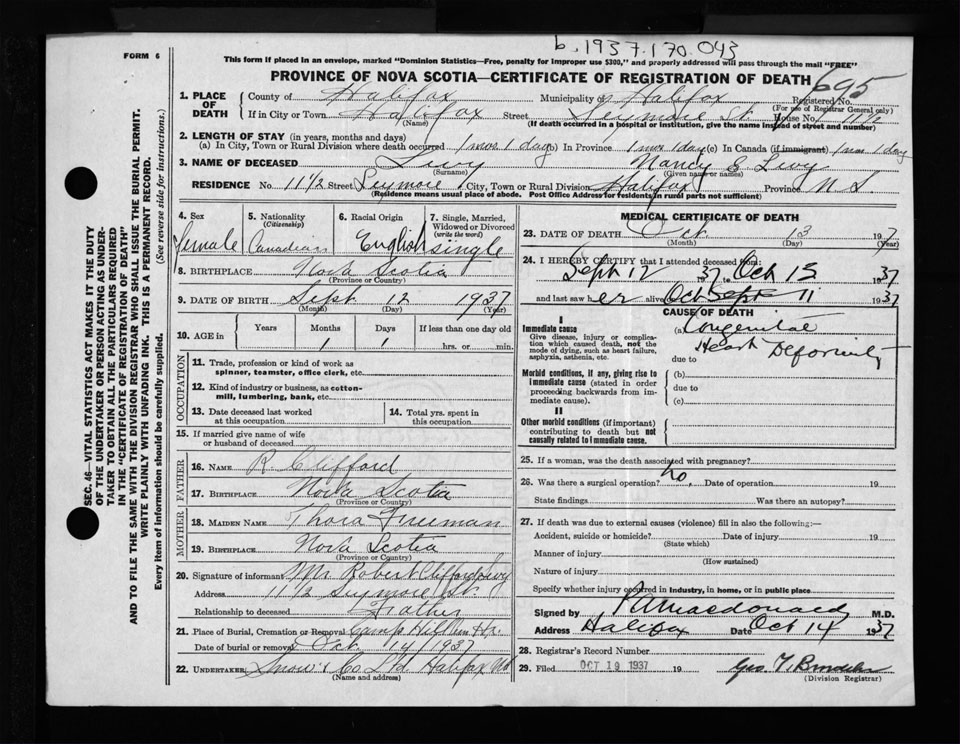 b. 1937.170.043
FORM 6
This form if placed in an envelope, marked "Dominion Statistics—Free, penalty for improper use $300," and properly addressed will pass through the mail "FREE"
PROVINCE OF NOVA SCOTIA—CERTIFICATE OF REGISTRATION OF DEATH
695
1. PLACE OF DEATH
County of Halifax Municipality of Halifax Registered No.
(For use of Registrar General only)
If in City or Town Halifax Street Seymore St. House No. 11 1/2
(Name) (If death occurred in a hospital or institution, give the name instead of street and number)
2. LENGTH OF STAY (in years, months and days)
(a) In City, Town or Rural Division where death occurred 1 mos 1 day (b) In Province 1 mos 1 day (c) In Canada (if immigrant) 1 mos 1 day
3. NAME OF DECEASED Livy Nancy E Livy
(Surname) (Given name or names)
RESIDENCE No. 11 1/2 Street Seymore City, Town or Rural Division Halifax Province N S.
(Residence means usual place of abode. Post Office Address for Residents in rural parts not sufficient)
4. Sex female
5. Nationality (Citizenship) Canadian
6. Racial Origin English
7. Single, Married, Widowed or Divorced (write the word) single
8. BIRTHPLACE Nova Scotia
(Province or Country)
9. DATE OF BIRTH Sept 12 1937
(Month) (Day) (Year)
10. AGE in Years Months 1 Days 1 If less than one day old hrs. or min.
OCCUPATION
11. Trade, profession or kind of work as spinner, teamster, office clerk, etc.
12. Kind of industry or business, as cotton-mill, lumbering, bank, etc.
13. Date deceased last worked at this occupation
14. Total yrs. spent in this occupation
15. If married give name of wife or husband of deceased
FATHER
16. NAME R. Clifford
17. BIRTHPLACE Nova Scotia
(Province or Country)
MOTHER
18. MAIDEN NAME Thora Freeman
19. BIRTHPLACE Nova Scotia
(Province or Country)
20. Signature of informant Mr Robert Clifford Livy
Address 11 1/2 Seymore St
Relationship to deceased Father
21. Place of Burial, Cremation or Removal Camp Hill Hx.
Date of burial or removal Oct. 14/1937
22. UNDERTAKER Snow & Co Ltd Halifax NS
(Name and address)
MEDICAL CERTIFICATE OF DEATH
23. DATE OF DEATH Oct 13 1937
(Month) (Day) (Year)
24. I HEREBY CERTIFY that I attended deceased from:
Sept 12 37 Oct 13 1937
and last saw her alive Oct Sept 11 1937
CAUSE OF DEATH
I
Immediate cause
Give disease, injury or complication which caused death, not the mode of dying, such as heart failure, asphyxia, asthenia, etc.
(a) Congenital Heart Deformity
due to
Morbid conditions, if any, giving rise to immediate cause (stated in order proceeding backwards from immediate cause)
(b)
due to
(c)
II
Other morbid conditions (if important) contributing to death but not causally related to immediate cause.
25. If a woman, was the death associated with pregnancy?
26. Was there a surgical operation? No. Date of operation 19
State findings Was there an autopsy?
27. If death was due to external causes (violence) fill in also the following:—
Accident, suicide or homicide? Date of injury 19
(State which)
Manner of injury
(How sustained)
Nature of injury
Specify whether injury occurred in industry, in home, or in public place
Signed by P A Macdonald M.D.
Address Halifax Date Oct 14 1937
28. Registrar's Record Number
29. Filed OCT 19 1937 19
(Division Registrar)
SEC. 46—VITAL STATISTICS ACT MAKES IT THE DUTY
OF THE UNDERTAKER OR PERSON ACTING AS UNDER-
TAKER TO OBTAIN ALL THE PARTICULARS REQUIRED
IN THE "CERTIFICATE OF REGISTRATION OF DEATH"
AND TO FILE THE SAME WITH THE DIVISION REGISTRAR WHO SHALL ISSUE THE BURIAL PERMIT.
WRITE PLAINLY WITH UNFADING INK. THIS IS A PERMANENT RECORD.
Every item of information should be carefully supplied. (See reverse side for instructions.)